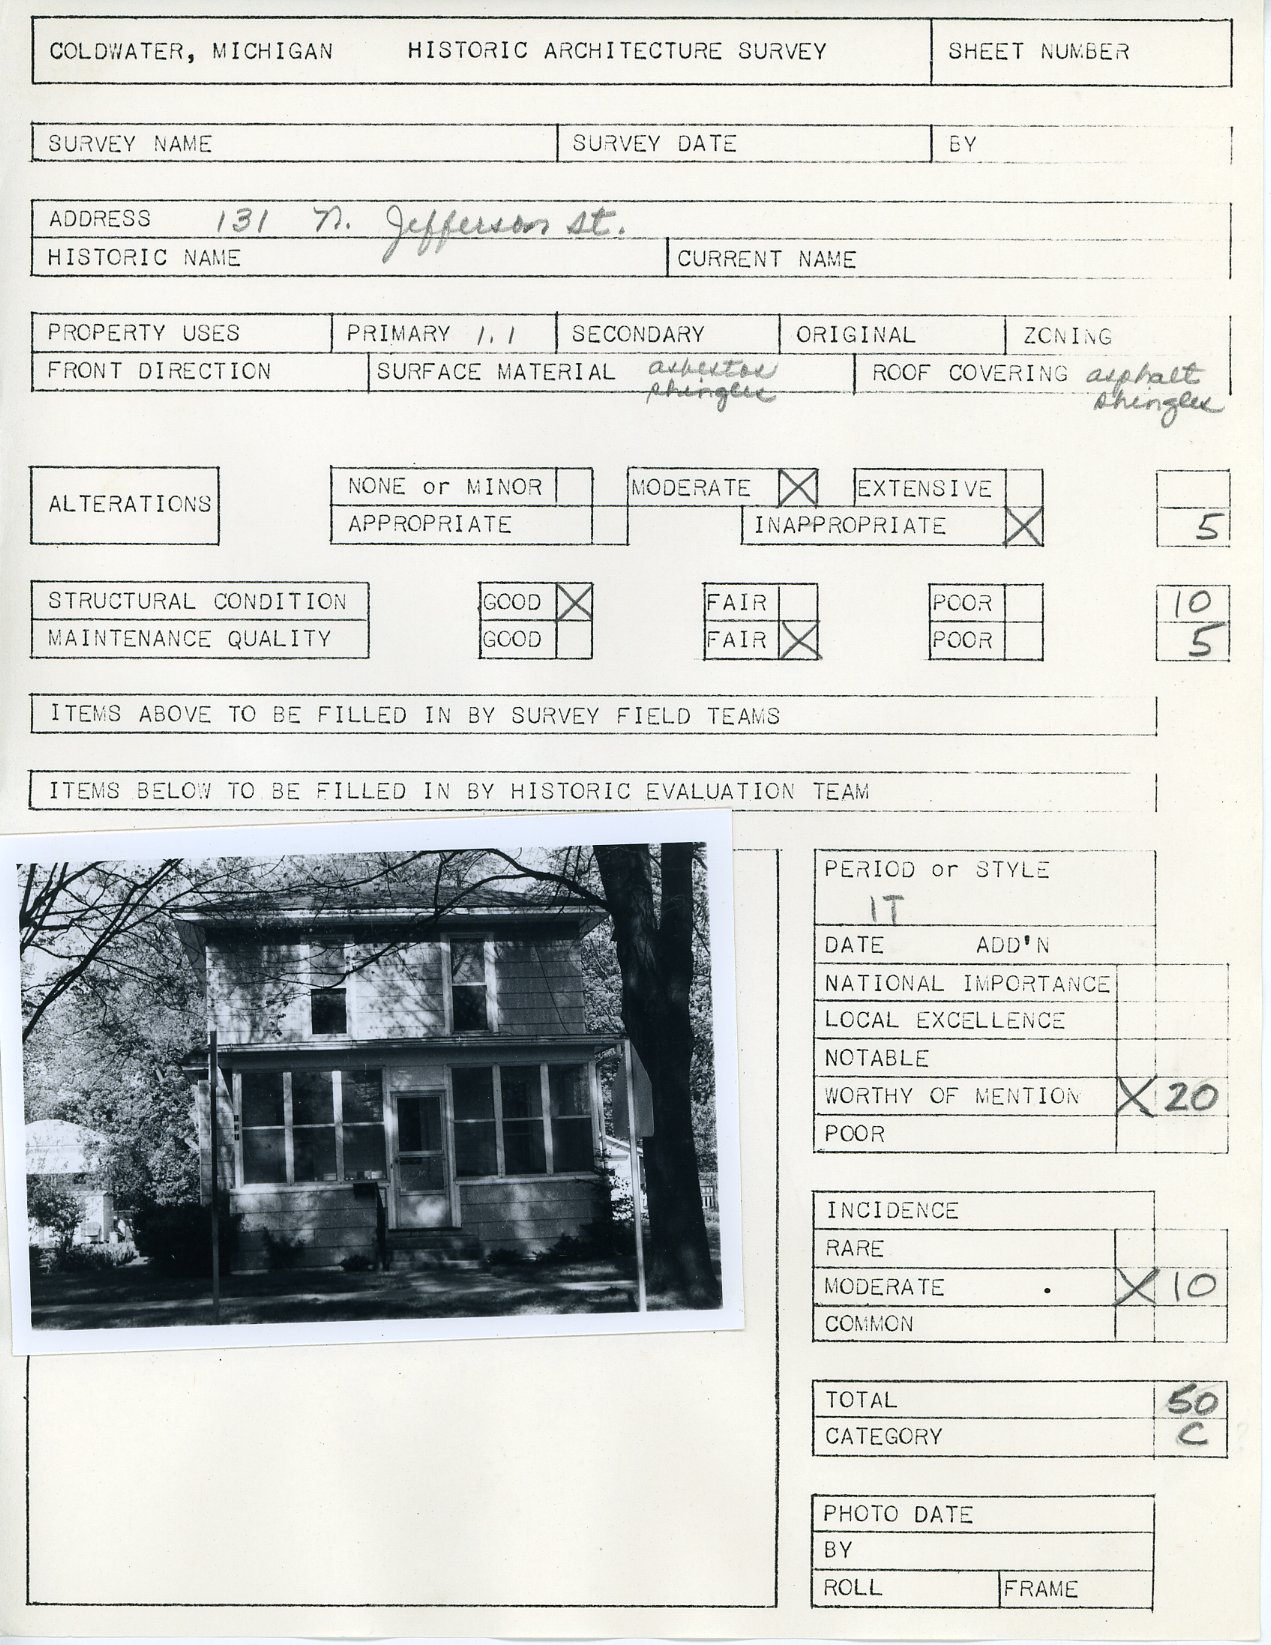 COLDWATER, MICHIGAN HISTORIC ARCHITECTURE SURVEY SHEET NUMBER
SURVEY NAME SURVEY DATE BY
ADDRESS 131 N. Jefferson St.
HISTORIC NAME CURRENT NAME
PROPERTY USES PRIMARY 1.1 SECONDARY ORIGINAL ZONING
FRONT DIRECTION SURFACE MATERIAL asbestos shingles ROOF COVERING asphalt shingles
ALTERATIONS
NONE or MINOR MODERATE X EXTENSIVE
APPROPRIATE INAPPROPRIATE X 5
STRUCTURAL CONDITION GOOD X FAIR POOR 10
MAINTENANCE QUALITY GOOD FAIR X POOR 5
ITEMS ABOVE TO BE FILLED IN BY SURVEY FIELD TEAMS
ITEMS BELOW TO BE FILLED IN BY HISTORIC EVALUATION TEAM
PERIOD or STYLE
IT
DATE ADD'N
NATIONAL IMPORTANCE
LOCAL EXCELLENCE
NOTABLE
WORTHY OF MENTION X 20
POOR
INCIDENCE
RARE
MODERATE X 10
COMMON
TOTAL 50
CATEGORY C ?
PHOTO DATE
BY
ROLL FRAME